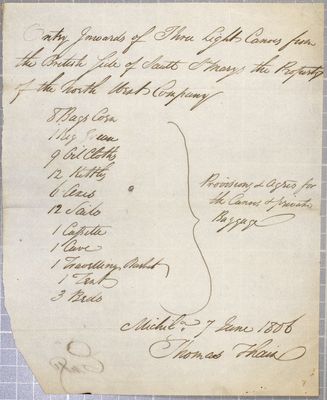 Entry Inwards of Three Light Canoes from
the British Side of Sault St Marys the Property
of the North West Company
8 Bags Corn
1 Keg
9 Oil Cloths
12 Kettles
6 Axes
12 Sails
1 Cassette
1 Cave
1 Travelling Basket
1 Tent
3 Beds
Provisions & Agrès for
the Canoes & private
Baggage
Michilᵃ 7 June 1806
Thomas Thain